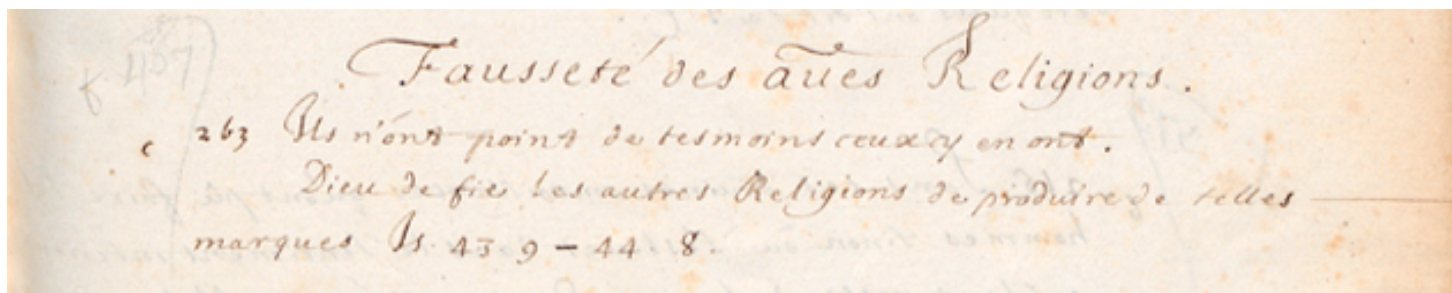 f 407
Fausseté des aūes Religions.
c 263 Ils n'ont point de tesmoins ceux cy en ont.
Dieu defie les autres Religions de produire de telles
marques Is. 43 9 – 44 8.